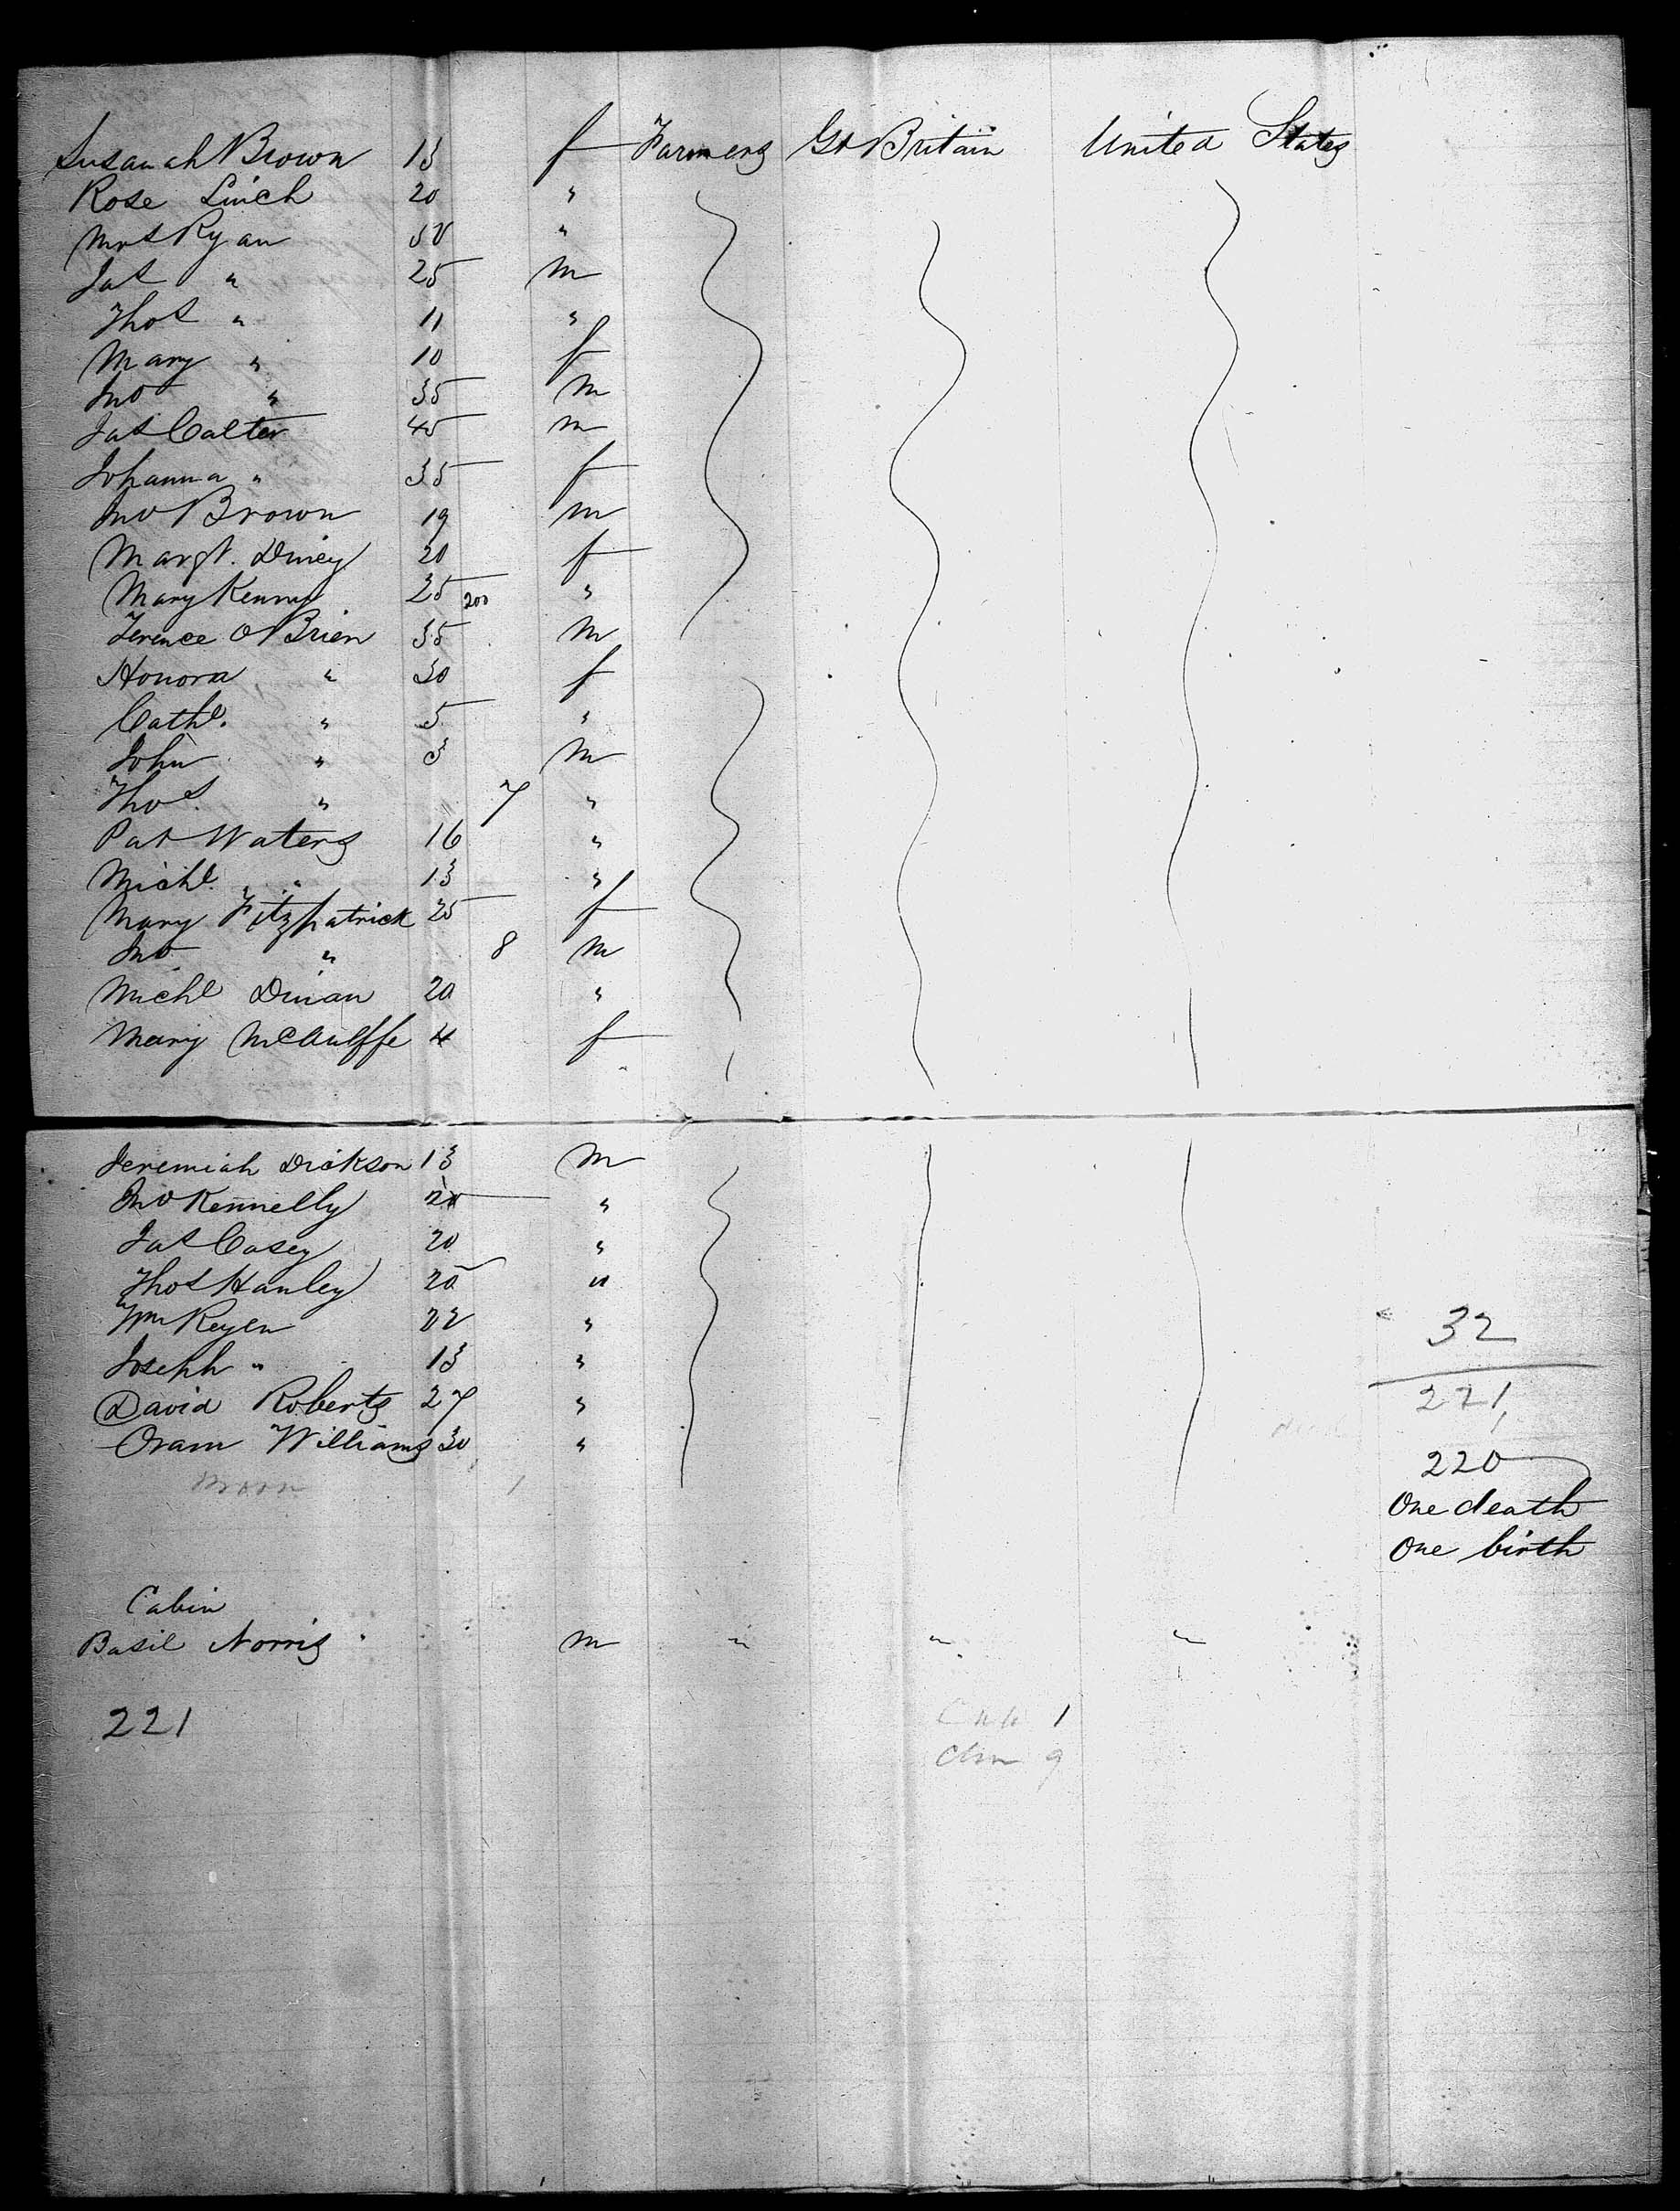 Susanah Brown 13 f Farmers Gt Britain United States
Rose Linch 20 "
Mrs Ryan 50 "
Jas " 25 m
Thos " 11 "
Mary " 10 f
Jno " 35 m
Jas Colter 45 m
Johanna " 35 f
Jno Brown 19 m
Margt. Diney 20 f
Mary Kenny 25 200 "
Terence O'Brien 35 m
Honora " 30 f
Cathe. " 5 "
John " 3 m
Thos. " 7 "
Pat Waters 16 "
Michl. " 13 "
Mary Fitzpatrick 25 f
Jno " 8 m
Michl Dinan 20 "
Mary McAulffe 4 f
Jeremiah Dickson 13 m
Jno Kennelly "
Jas Casey 20 "
Thos Hanley 20 "
Wm Reyen 22 " 32
Joseph " 13 "
David Roberts 27 " 221
Oram Williams 30 "
220
One death
One birth
Cabin
Basil Norris m " " "
221 1
9